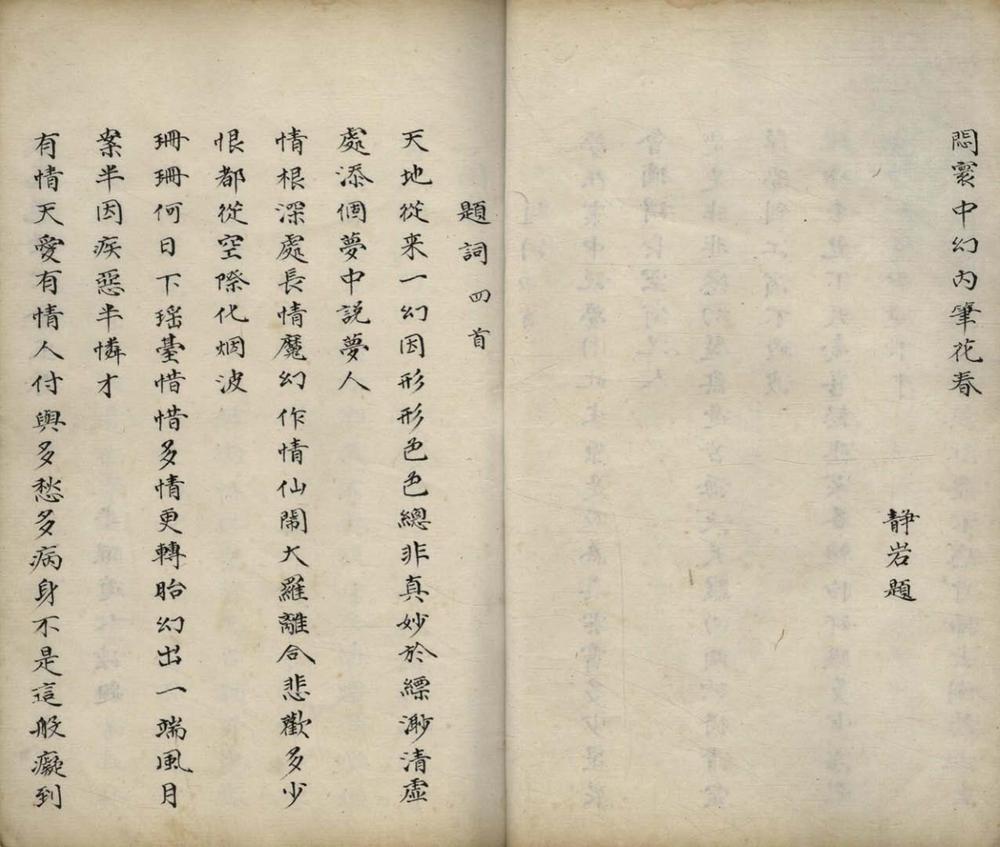 悶寰中幻內筆花春
靜岩題
題詞四首
天地從来一幻因形形色色總非真妙於縹渺清虛
處添個夢中説夢人
情根深處長情魔幻作情仙鬧大羅離合悲歡多少
恨都從空際化烟波
珊珊何日下瑶臺惜惜多情更轉胎幻出一端風月
案半因疾惡半憐才
有情天愛有情人付與多愁多病身不是這般癡到